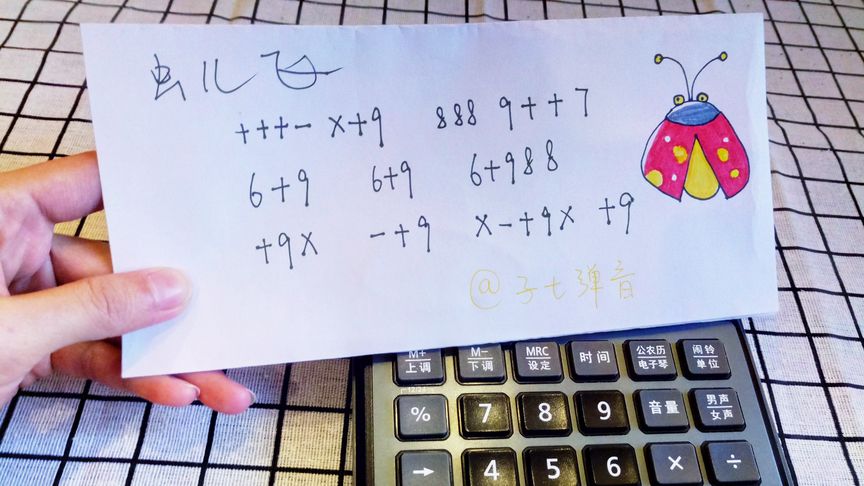 虫儿飞
+++- ×+9 888 9++7
6+9 6+9 6+988
+9× -+9 ×-+9× +9
@子七弹音
M+ 上调 M- 下调 MRC 设定 时间 公农历 电子琴 闹铃 单位
% 7 8 9 音量 男声 女声
→ 4 5 6 × ÷